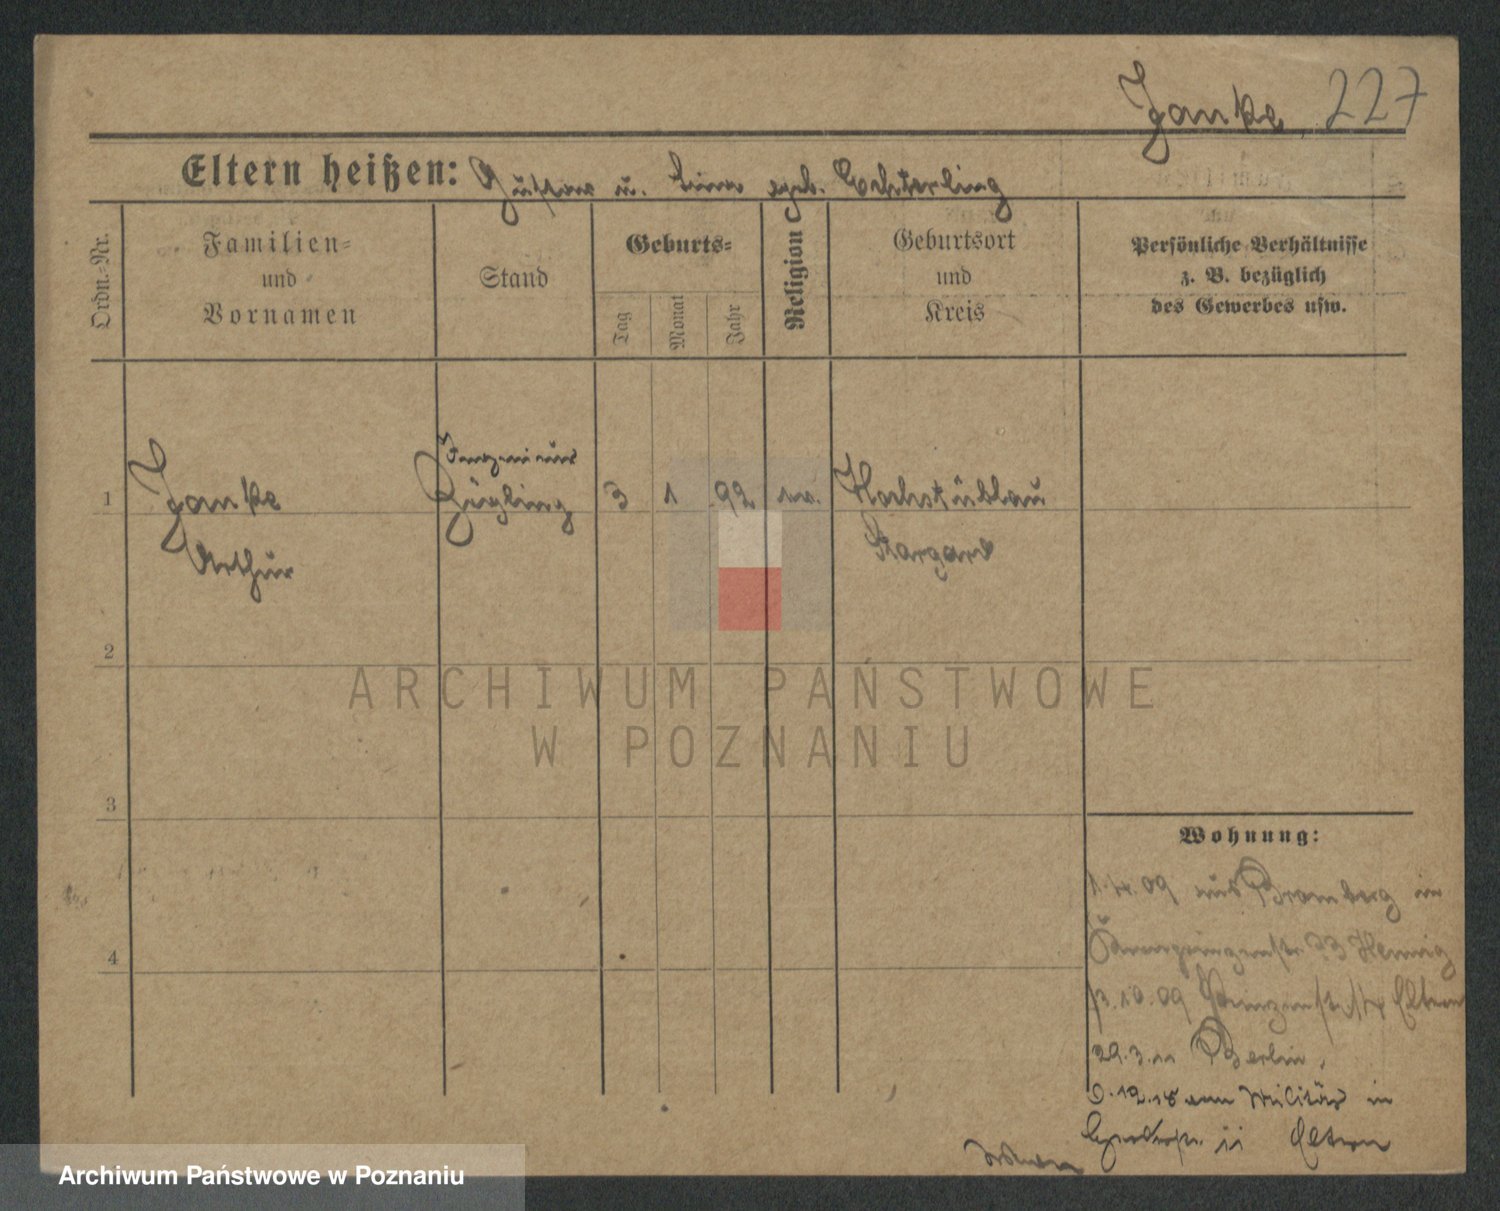 Janke, 227
Eltern heißen: Gustav u. geb. Echterling
Ordn.-Nr.
Familien-
und
Vornamen
Stand
Geburts-
Tag
Monat
Jahr
Religion
Geburtsort
und
Kreis
Persönliche Verhältnisse
z. B. bezüglich
des Gewerbes usw.
Ingenieur
1 Janke Zögling 3 1 92 Hochstüblau
Arthur Stargard
2
3
4
ARCHIWUM PAŃSTWOWE
W POZNANIU
Wohnung:
1.4.09 aus Bromberg in
Kronprinzenstr. 33 Hennig
10.09 Prinzenstr. Eltern
29.3.11 Berlin.
6.12.18 vom Militär in
11 Eltern
Archiwum Państwowe w Poznaniu